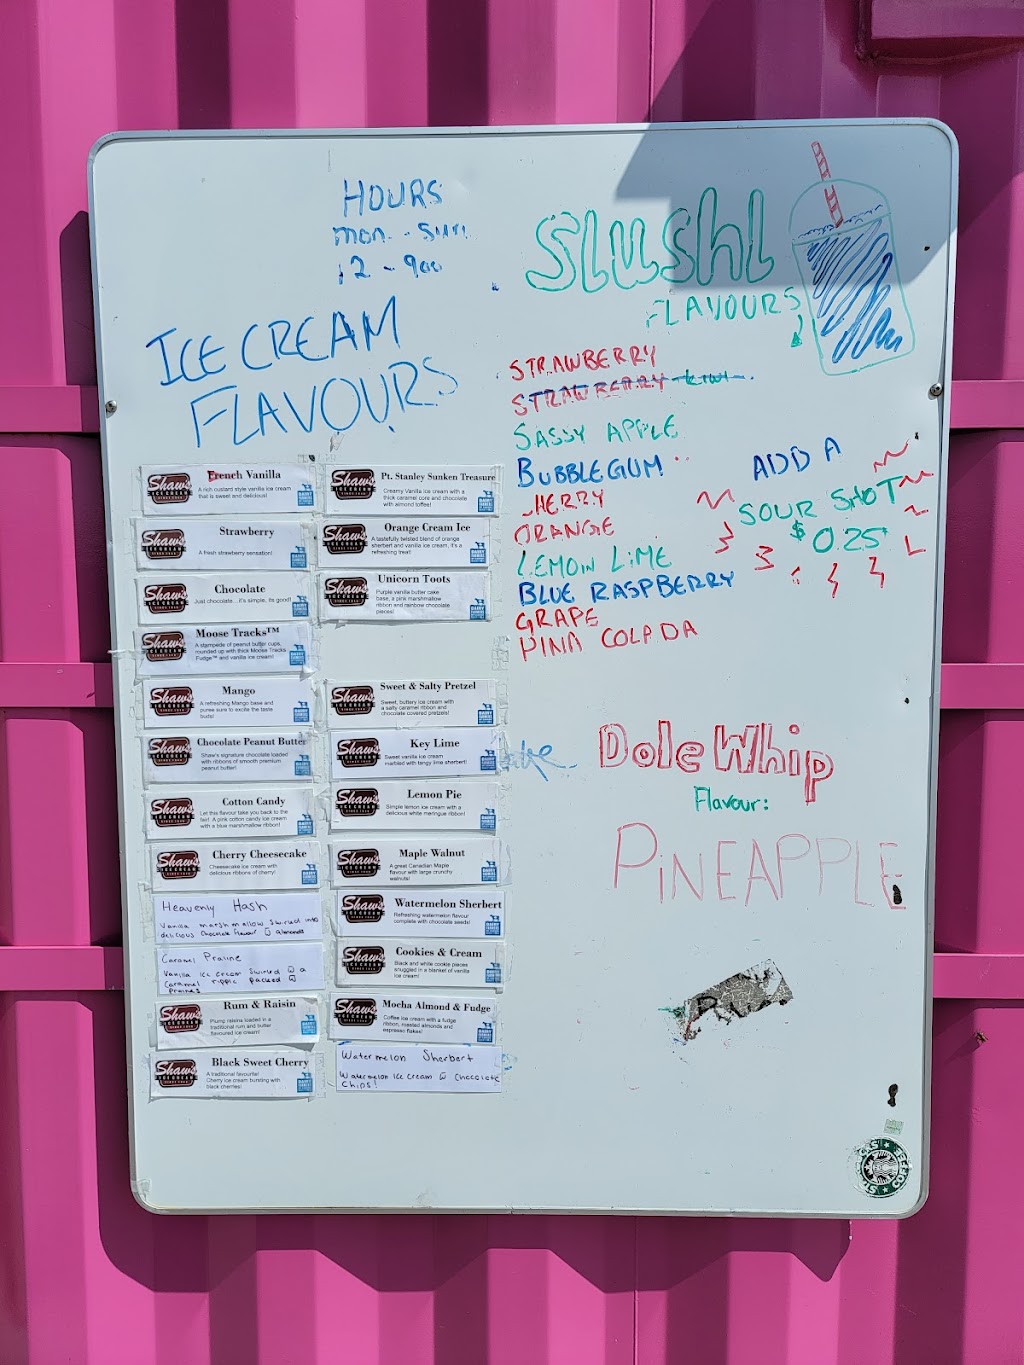 HOURS
mon - Sun
12 - 900
ICE CREAM
FLAVOURS
Shaw's
ICE CREAM
SINCE 1948
French Vanilla
A rich custard style vanilla ice cream
that is sweet and delicious!
Shaw's
ICE CREAM
Strawberry
A fresh strawberry sensation!
Shaw's
ICE CREAM
Chocolate
Just chocolate...it's simple, its good!
Shaw's
ICE CREAM
Moose Tracks™
A stampede of peanut butter cups,
rounded up with thick Moose Tracks
Fudge™ and vanilla ice cream!
Shaw's
ICE CREAM
Mango
A refreshing Mango base and
puree sure to excite the taste
buds!
Shaw's
ICE CREAM
Chocolate Peanut Butter
Shaw's signature chocolate loaded
with ribbons of smooth premium
peanut butter!
Shaw's
ICE CREAM
Cotton Candy
Let this flavour take you back to the
fair! A pink cotton candy ice cream
with a blue marshmallow ribbon!
Shaw's
ICE CREAM
Cherry Cheesecake
Cheesecake ice cream with
delicious ribbons of cherry!
Heavenly Hash
Vanilla marshmallow swirled into
delicious chocolate flavour w almonds
Caramel Praline
Vanilla Ice cream swirled w a
caramel ripple packed w
Pralines
Shaw's
ICE CREAM
Rum & Raisin
Plump raisins loaded in a
traditional rum and butter
flavoured ice cream!
Shaw's
ICE CREAM
Black Sweet Cherry
A traditional favourite!
Cherry ice cream bursting with
black cherries!
Shaw's
ICE CREAM
Pt. Stanley Sunken Treasure
Creamy Vanilla ice cream with a
thick caramel core and chocolate
with almond toffee!
Shaw's
ICE CREAM
Orange Cream Ice
A tastefully twisted blend of orange
sherbert and vanilla ice cream, it's a
refreshing treat!
Shaw's
ICE CREAM
Unicorn Toots
Purple vanilla butter cake
base, a pink marshmallow
ribbon and rainbow chocolate
pieces!
Shaw's
ICE CREAM
Sweet & Salty Pretzel
Sweet, buttery ice cream with
a salty caramel ribbon and
chocolate covered pretzels!
Shaw's
ICE CREAM
Key Lime
Sweet vanilla ice cream
marbled with tangy lime sherbert!
Shaw's
ICE CREAM
Lemon Pie
Simple lemon ice cream with a
delicious white meringue ribbon!
Shaw's
ICE CREAM
Maple Walnut
A great Canadian Maple
flavour with large crunchy
walnuts!
Shaw's
ICE CREAM
Watermelon Sherbert
Refreshing watermelon flavour
complete with chocolate seeds!
Shaw's
ICE CREAM
Cookies & Cream
Black and white cookie pieces
snuggled in a blanket of vanilla
ice cream!
Shaw's
ICE CREAM
Mocha Almond & Fudge
Coffee ice cream with a fudge
ribbon, roasted almonds and
espresso flakes!
Watermelon Sherbert
Watermelon Ice Cream w Chocolate
Chips!
Slushi
FLAVOURS
STRAWBERRY
STRAWBERRY KIWI
SASSY APPLE
BUBBLEGUM
CHERRY
ORANGE
LEMON LIME
BLUE RASPBERRY
GRAPE
PINA COLADA
ADD A
SOUR SHOT
$0.25
Dole Whip
Flavour:
PINEAPPLE
COFFEE